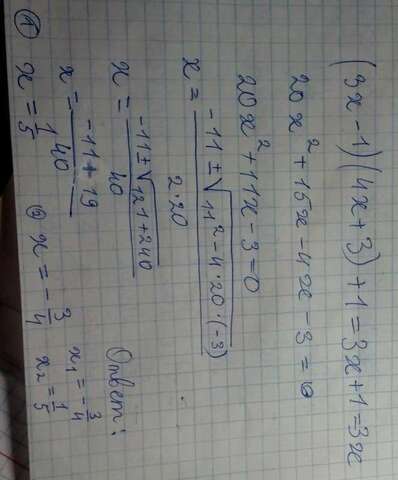 (3x-1)(4x+3)+1=3x+1=3x
20x²+15x-4x-3=0
20x²+11x-3=0
x = (-11±√(11²-4·20·(-3)))/(2·20)
x = (-11±√(121+240))/40
x = (-11+19)/40
① x = 1/5 ② x = -3/4
Ответ:
x₁=-3/4
x₂=1/5